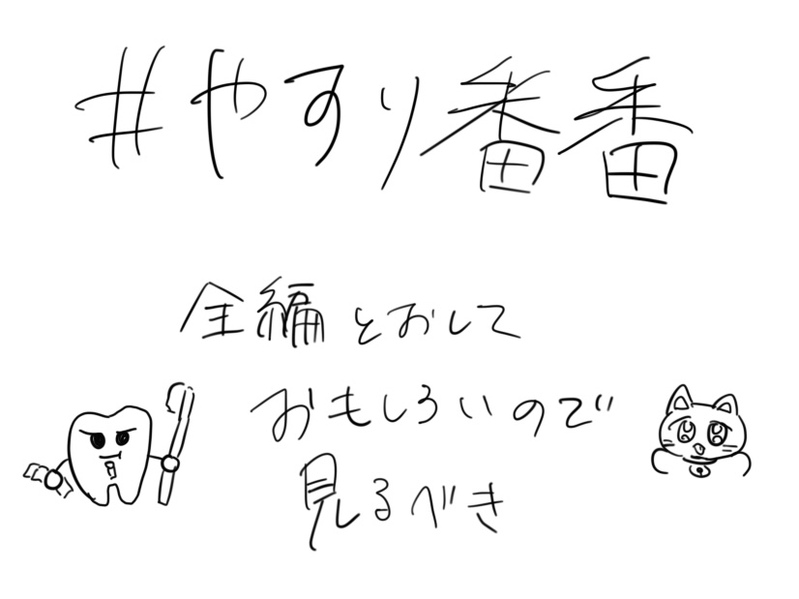 #やすり番番
全編とおして
おもしろいので
見るべき